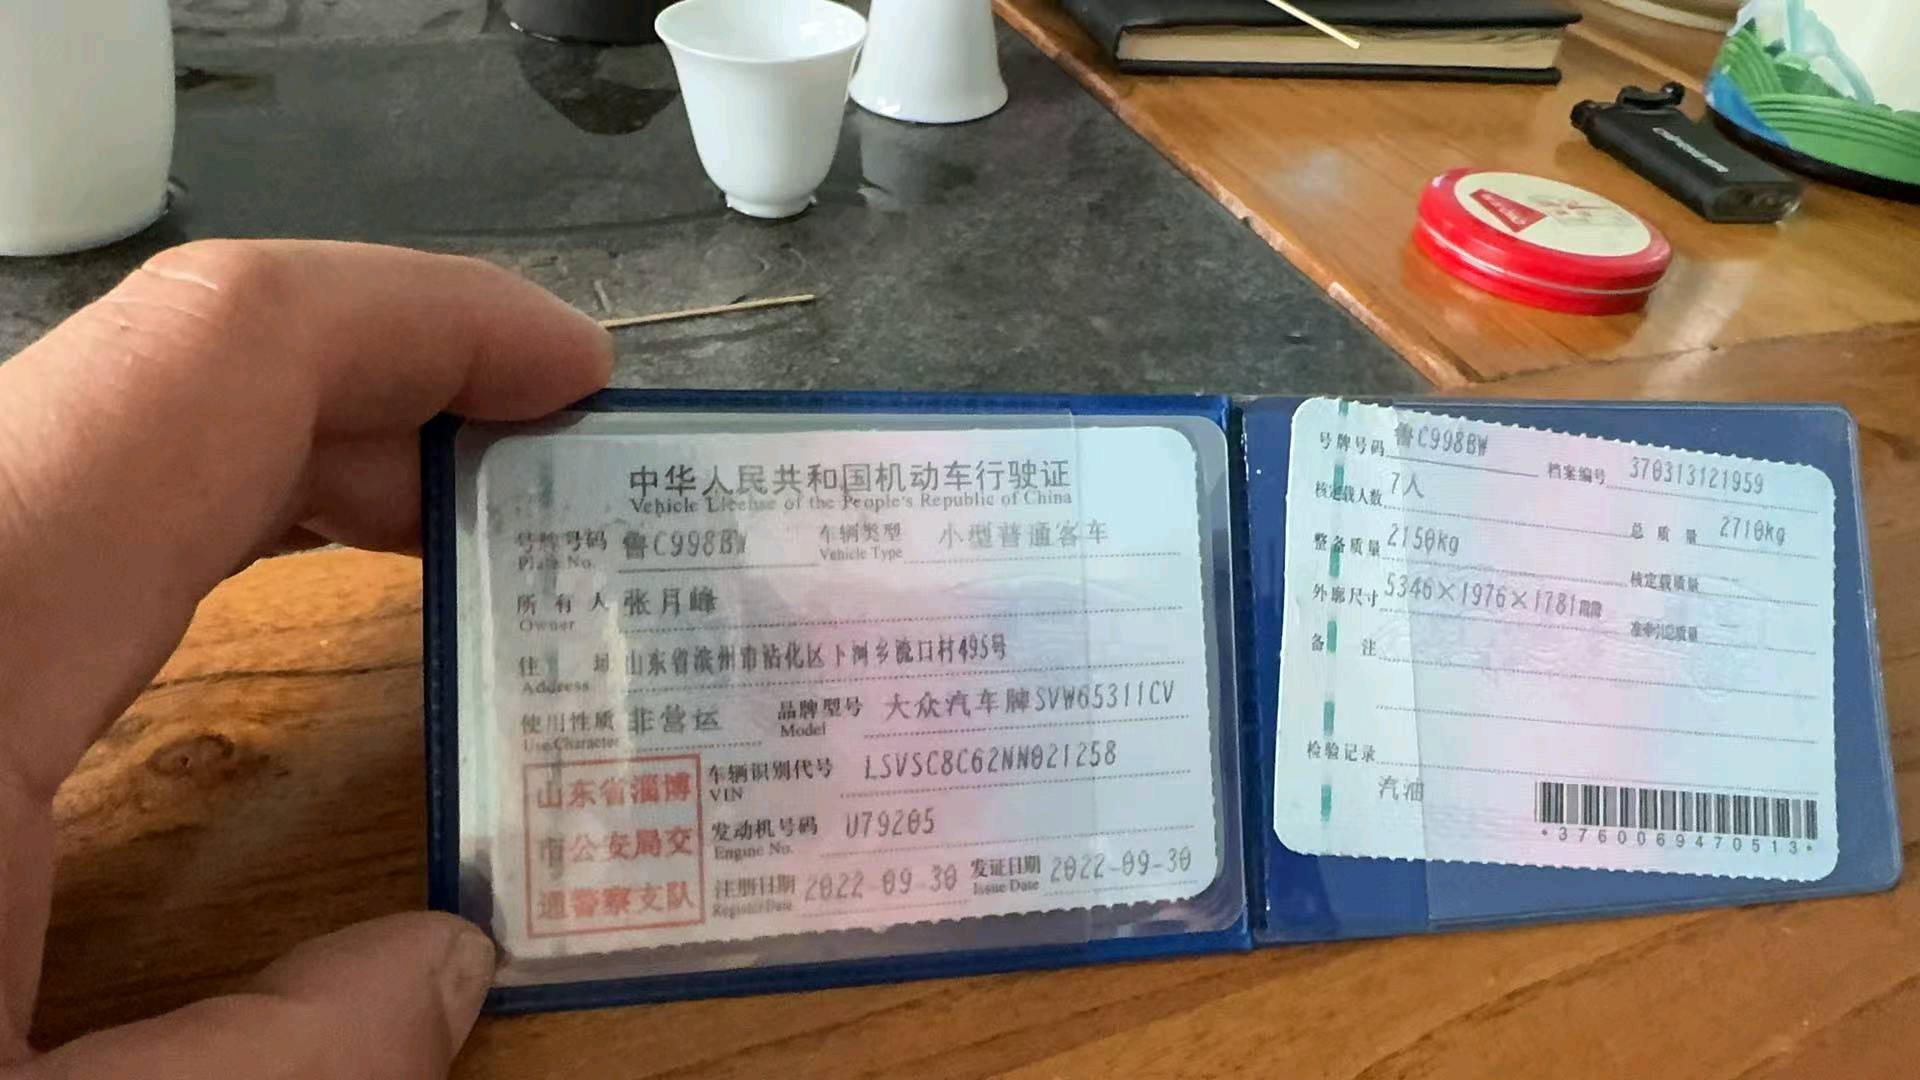 中华人民共和国机动车行驶证
Vehicle License of the People's Republic of China
号牌号码 鲁C998BW 车辆类型 小型普通客车
Plate No. Vehicle Type
所有人 张月峰
Owner
住址 山东省滨州市沾化区下河乡流口村495号
Address
使用性质 非营运 品牌型号 大众汽车牌SVW65311CV
Use Character Model
山东省淄博
市公安局交
通警察支队
车辆识别代号 LSVSC8C62NN021258
VIN
发动机号码 U79205
Engine No.
注册日期 2022-09-30 发证日期 2022-09-30
Register Date Issue Date
号牌号码 鲁C998BW 档案编号 370313121959
核定载人数 7人 总质量 2710kg
整备质量 2150kg 核定载质量
外廓尺寸 5346×1976×1781mm 准牵引总质量
备注
检验记录
汽油
*3760069470513*